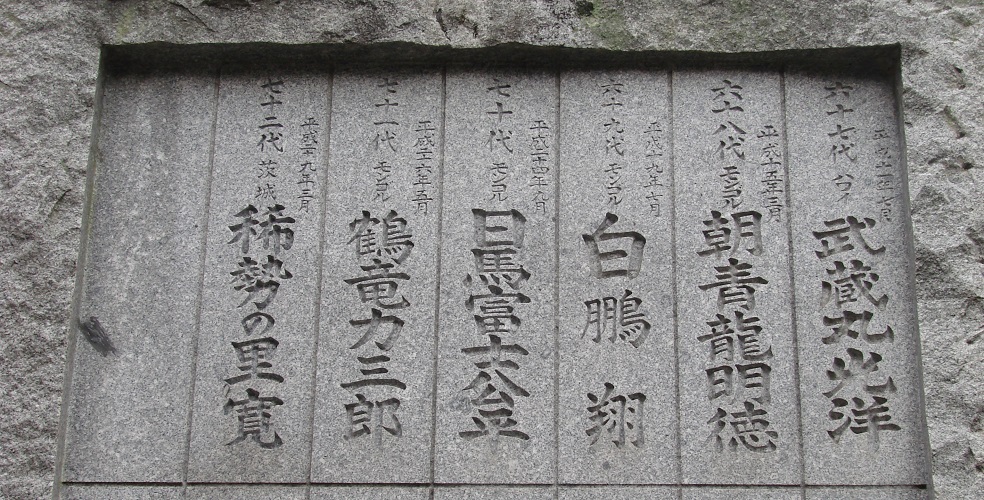 六十七代 ハワイ
武蔵丸光洋
平成十五年三月
六十八代 モンゴル
朝青龍明徳
平成十九年七月
六十九代 モンゴル
白鵬翔
平成二十四年八月
七十代 モンゴル
日馬富士公平
平成二十六年五月
七十一代 モンゴル
鶴竜力三郎
平成二十九年三月
七十二代 茨城
稀勢の里寛